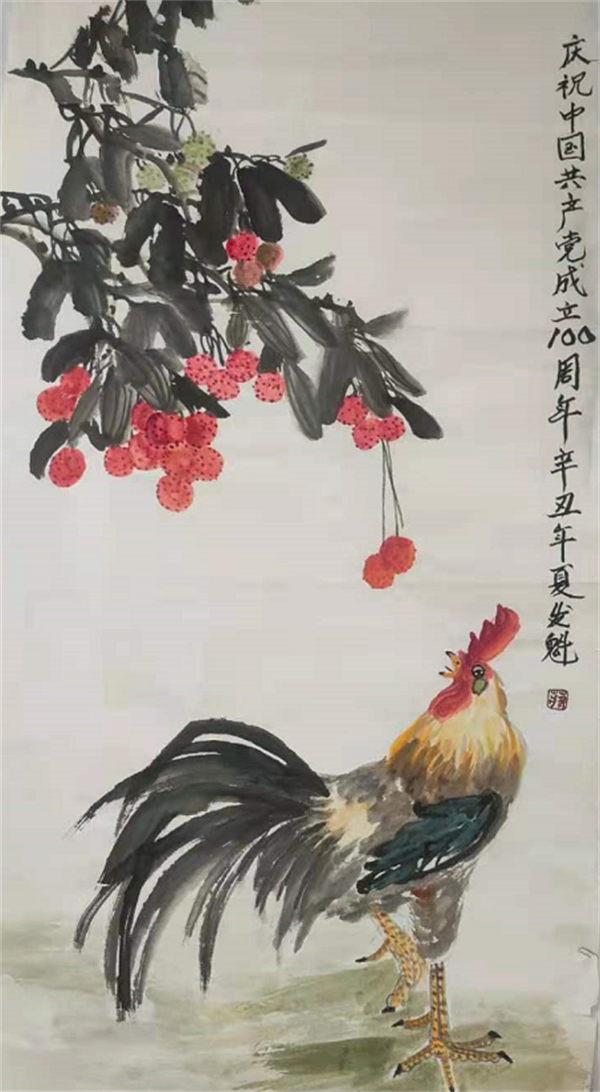 庆祝中国共产党成立100周年辛丑年夏发魁